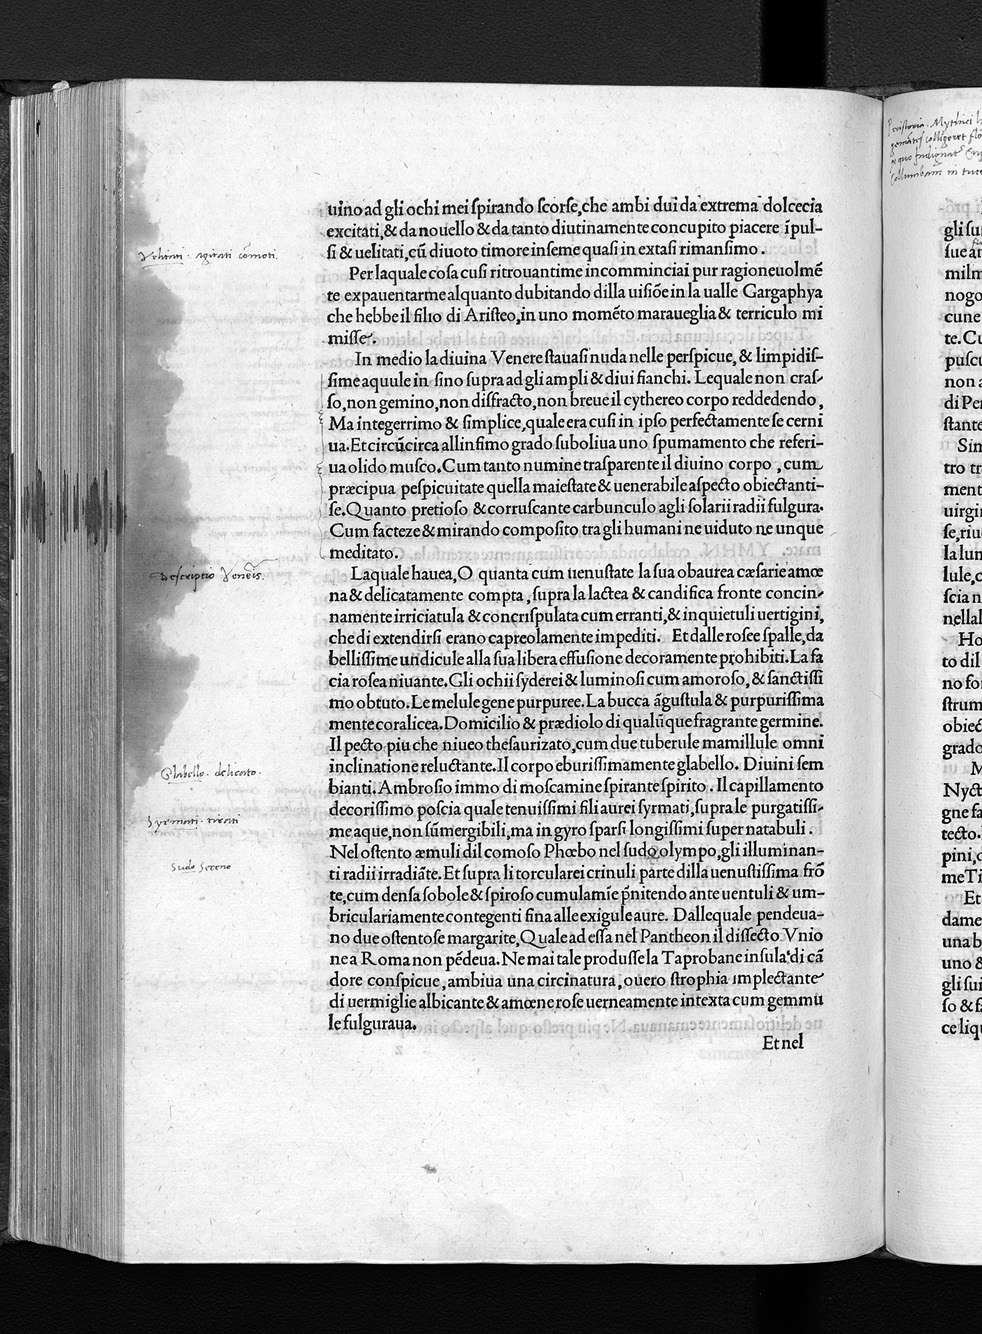 uino ad gli ochi mei ſpirando ſcorſe, che ambi dui da extrema dolcecia
excitati, & da nouello & da tanto diutinamente concupito piacere ĩpul-
ſi & uelitati, cũ diuoto timore inſeme quaſi in extaſi rimanſimo.
Velitati. agitati cõmoti.
Per laquale coſa cuſi ritrouantime incomminciai pur ragioneuolmẽ
te expauentarme alquanto dubitando dilla uiſiõe in la ualle Gargaphya
che hebbe il filio di Ariſteo, in uno momẽto maraueglia & terriculo mi
miſſe.
In medio la diuina Venere ſtauaſi nuda nelle perſpicue, & limpidiſ-
ſime aquule in ſino ſupra ad gli ampli & diui fianchi. Lequale non craſ-
ſo, non gemino, non diſfracto, non breue il cythereo corpo reddedendo,
Ma integerrimo & ſimplice, quale era cuſi in ipſo perfectamente ſe cerni
ua. Et circũcirca allinfimo grado ſuboliua uno ſpumamento che referi-
ua olido muſco. Cum tanto numine traſparente il diuino corpo, cum
præcipua peſpicuitate quella maieſtate & uenerabile aſpecto obiectanti-
ſe. Quanto pretioſo & corruſcante carbunculo agli ſolarii radii fulgura.
Cum facteze & mirando compoſito tra gli humani ne uiduto ne unque
meditato.
Descriptio Veneris.
Laquale hauea, O quanta cum uenuſtate la ſua obaurea cæſarie amœ
na & delicatamente compta, ſupra la lactea & candifica fronte concin-
namente irriciatula & concriſpulata cum erranti, & inquietuli uertigini,
che di extendirſi erano capreolamente impediti. Et dalle roſee ſpalle, da
belliſſime undicule alla ſua libera effuſione decoramente prohibiti. La fa
cia roſea niuante. Gli ochii ſyderei & luminoſi cum amoroſo, & ſanctiſſi
mo obtuto. Le melule gene purpuree. La bucca ãguſtula & purpuriſſima
mente coralicea. Domicilio & prædiolo di qualũque fragrante germine.
Il pecto piu che niueo theſaurizato, cum due tuberule mamillule omni
inclinatione reluctante. Il corpo eburiſſimamente glabello. Diuini ſem
Glabello. delicato.
bianti. Ambroſio immo di moſcamine ſpirante ſpirito. Il capillamento
decoriſſimo poſcia quale tenuiſſimi fili aurei ſyrmati, ſupra le purgatiſſi-
Syrmati. tirati
me aque, non ſũmergibili, ma in gyro ſparſi longiſſimi ſuper natabuli.
Nel oſtento æmuli dil comoſo Phœbo nel ſudo olympo, gli illuminan-
Sudo Sereno
ti radii irradiãte. Et ſupra li torculareì crinuli parte dilla uenuſtiſſima frõ
te, cum denſa ſobole & ſpiroſo cumulamĩe p̃nitendo ante uentuli & um-
briculariamente contegenti fina alle exigule aure. Dallequale pendeua-
no due oſtentoſe margarite, Quale ad eſſa nel Pantheon il diſſecto Vnio
ne a Roma non pẽdeua. Ne mai tale produſſe la Taprobane inſula di cã
dore conſpicue, ambiua una circinatura, ouero ſtrophia implectante
di uermiglie albicante & amœne roſe uerneamente intexta cum gemmu
le fulguraua.
Et nel